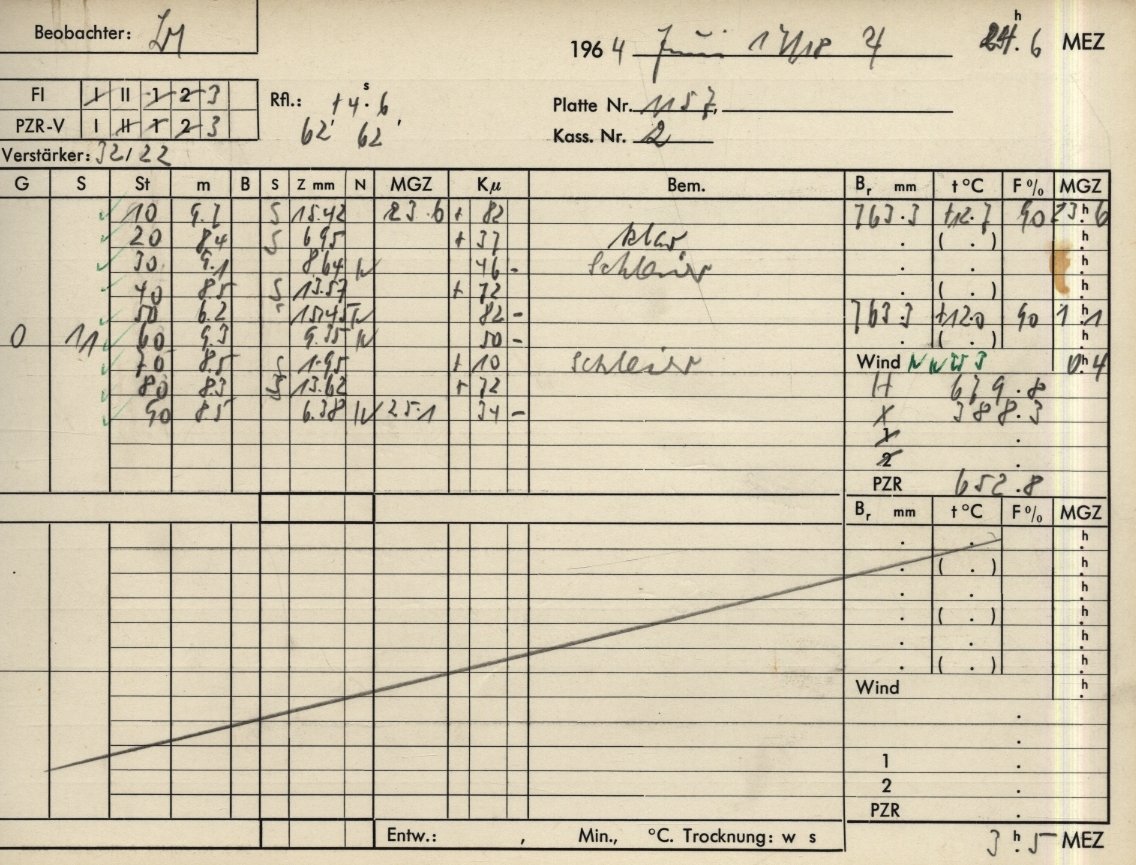 Beobachter:
1964 Juni 17/18 24h.6 MEZ
FI I II 1 2 3
PZR-V I II 1 2 3
Rfl.: +4s.6
62 62
Platte Nr. 1157,
Kass. Nr. 2
Verstärker: 32/22
G S St m B S Z mm N MGZ Kμ Bem. Br mm t °C F % MGZ
10 9.7 S 15.42 23.6 + 82 763.3 +12.7 90 23h.6
20 8.4 S 6.95 + 37 klar . ( . ) h.
30 9.1 8.64 N 46 - Schleier . . h.
40 8.5 S 13.57 + 72 . ( . ) h.
50 6.2 15.45 N 82 - 763.3 +12.0 90 1h.1
0 11 60 9.3 9.35 N 50 - . ( . ) h.
70 8.5 S 1.95 + 10 Schleier Wind NNW 3 0h.4
80 8.3 S 13.62 + 72 H 679.8
90 8.5 6.38 N 25.1 34 - X 388.3
1 .
2 .
PZR 652.8
Br mm t °C F % MGZ
. . h.
. ( . ) h.
. . h.
. ( . ) h.
. . h.
. ( . ) h.
Wind h.
.
.
1 .
2 .
PZR .
Entw.: , Min., °C. Trocknung: w s
3h.5 MEZ